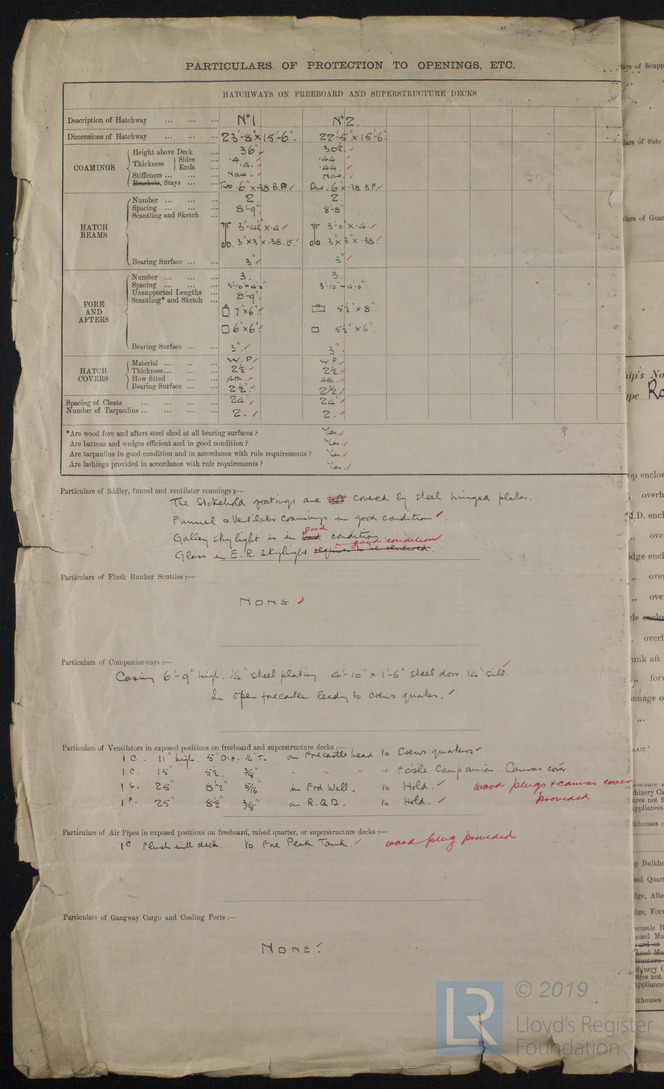 PARTICULARS OF PROTECTION TO OPENINGS, ETC.
HATCHWAYS ON FREEBOARD AND SUPERSTRUCTURE DECKS
Description of Hatchway ... ... ... No 1 No 2.
Dimensions of Hatchway ... ... ... 23'-8" x 15'-6". 22'-5" x 15'-6".
COAMINGS
Height above Deck ... 36" 30½"
Thickness { Sides ... .4 .44
Ends ... .4 .44
Stiffeners ... ... ... None. None.
Brackets, Stays ... ... Two 6" x .38 B.P. One 6" x .38 B.P.
HATCH BEAMS
Number ... ... ... 2 2
Spacing ... ... ... 8'-9" 8'-8"
Scantling and Sketch ...
x .4 3'-0" x .4
3" x 3" x .38 3" x 3" x .38
Bearing Surface ... ... 3" 3"
FORE AND AFTERS
Number ... ... ... 3. 3.
Spacing ... ... ... 3'-10" & 4'-0" 3'-10" & 4'-0"
Unsupported Lengths ... 8'-9"
Scantling* and Sketch ...
7" x 6" 5½" x 8"
6" x 6" 5½" x 6"
Bearing Surface ... ... 3" 3"
HATCH COVERS
Material ... ... ... W.P. W.P.
Thickness ... ... ... 2½ 2½
How fitted ... ...
Bearing Surface ... ... 2½" 2½
Spacing of Cleats ... ... ... ... 24" 24"
Number of Tarpaulins ... ... ... ... 2. 2.
*Are wood fore and afters steel shod at all bearing surfaces? Yes
Are battens and wedges efficient and in good condition? Yes
Are tarpaulins in good condition and in accordance with rule requirements? Yes
Are lashings provided in accordance with rule requirements? Yes
Particulars of fiddley, funnel and ventilator coamings:—
The Stokehold gratings are covered by steel hinged plates.
Funnel & Ventilator Coamings in good condition.
good
Galley skylight is in bad condition
good condition
Glass in E.R. skylight requires to be renewed.
Particulars of Flush Bunker Scuttles:—
NONE.
Particulars of Companionways:—
Casing 6'-9" high. ¼" steel plating 4'-10" x 1'-6" steel door. 14" sill.
In open forecastle leading to crews quarters.
Particulars of Ventilators in exposed positions on freeboard and superstructure decks:—
1 C. 11" high. 5" Dia. T. on Forecastle head to Crews quarters
1 C. 15" 5½ " " " Fo'csle Companion Canvas cover
1 S. 25" 8½" 5/16" in Frd Well. to Hold. wood plugs & canvas cover
1 P. 25" 8½" 3/8" on R.Q.D. to Hold. provided
Particulars of Air Pipes in exposed positions on freeboard, raised quarter, or superstructure decks:—
1 C Flush with deck. to Fore Peak Tank. wood plug provided
Particulars of Gangway Cargo and Coaling Ports:—
NONE.
LR © 2019
Lloyd's Register
Foundation